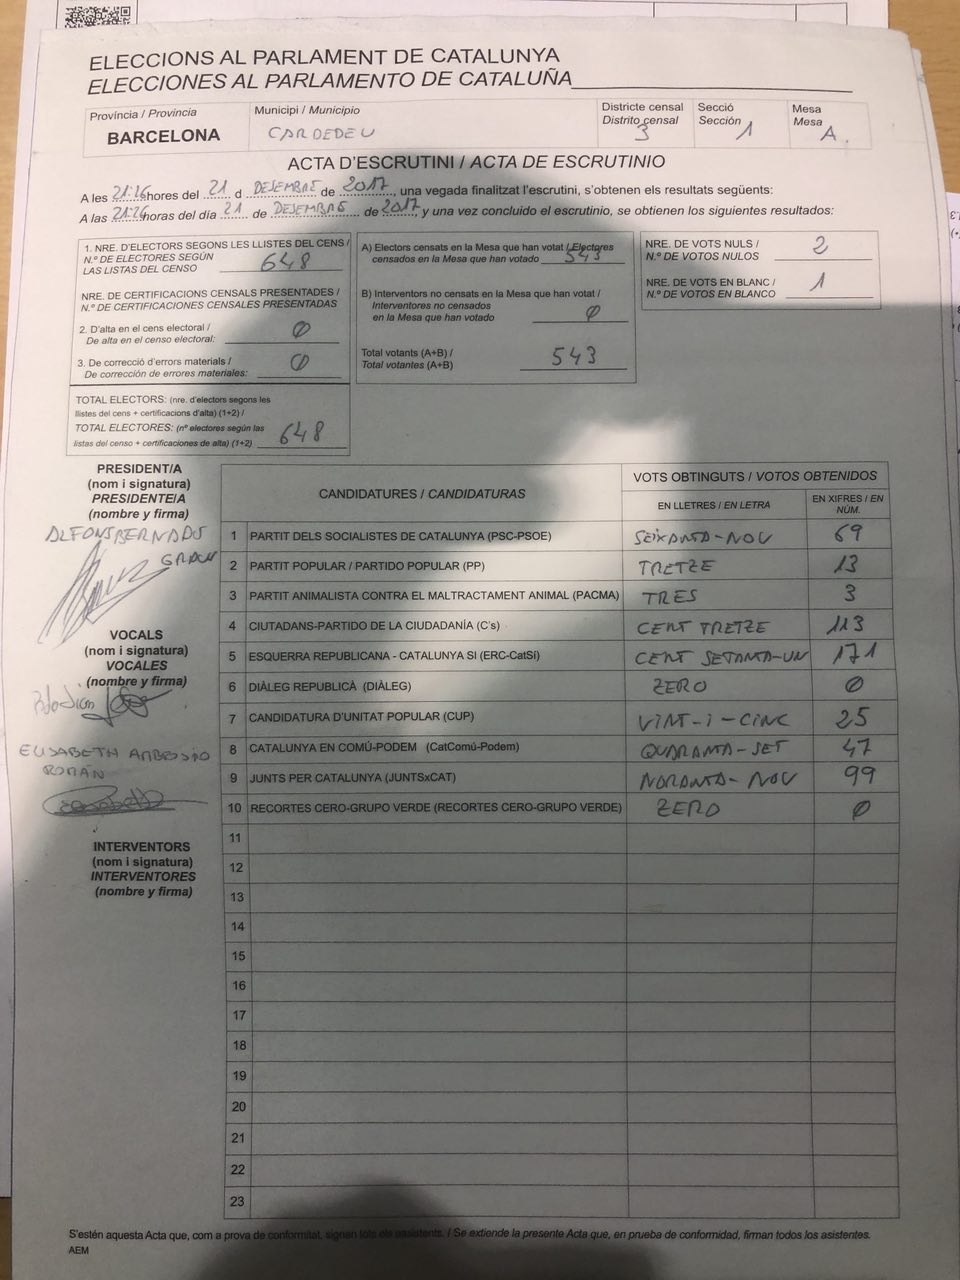 ELECCIONS AL PARLAMENT DE CATALUNYA
ELECCIONES AL PARLAMENTO DE CATALUÑA
Província / Provincia
BARCELONA
Municipi / Municipio
CARDEDEU
Districte censal
Distrito censal
3
Secció
Sección
1
Mesa
Mesa
A.
ACTA D'ESCRUTINI / ACTA DE ESCRUTINIO
A les 21:26 hores del 21 d DESEMBRE de 2017, una vegada finalitzat l'escrutini, s'obtenen els resultats següents:
A las 21:26 horas del día 21 de DESEMBRE de 2017, y una vez concluido el escrutinio, se obtienen los siguientes resultados:
1. NRE. D'ELECTORS SEGONS LES LLISTES DEL CENS /
N.º DE ELECTORES SEGÚN
LAS LISTAS DEL CENSO 648
NRE. DE CERTIFICACIONS CENSALS PRESENTADES /
N.º DE CERTIFICACIONES CENSALES PRESENTADAS
2. D'alta en el cens electoral /
De alta en el censo electoral: 0
3. De correcció d'errors materials /
De corrección de errores materiales: 0
TOTAL ELECTORS: (nre. d'electors segons les
llistes del cens + certificacions d'alta) (1+2) /
TOTAL ELECTORES: (nº electores según las
listas del censo + certificaciones de alta) (1+2) 648
A) Electors censats en la Mesa que han votat / Electores
censados en la Mesa que han votado 543
B) Interventors no censats en la Mesa que han votat /
Interventores no censados
en la Mesa que han votado 0
Total votants (A+B) /
Total votantes (A+B) 543
NRE. DE VOTS NULS /
N.º DE VOTOS NULOS 2
NRE. DE VOTS EN BLANC /
N.º DE VOTOS EN BLANCO 1
PRESIDENT/A
(nom i signatura)
PRESIDENTE/A
(nombre y firma)
ALFONS BERNADO
GRAU
VOCALS
(nom i signatura)
VOCALES
(nombre y firma)
ELISABETH AMBROSIO
ROMÁN
INTERVENTORS
(nom i signatura)
INTERVENTORES
(nombre y firma)
CANDIDATURES / CANDIDATURAS
VOTS OBTINGUTS / VOTOS OBTENIDOS
EN LLETRES / EN LETRA
EN XIFRES / EN
NÚM.
1 PARTIT DELS SOCIALISTES DE CATALUNYA (PSC-PSOE) SEIXANTA-NOU 69
2 PARTIT POPULAR / PARTIDO POPULAR (PP) TRETZE 13
3 PARTIT ANIMALISTA CONTRA EL MALTRACTAMENT ANIMAL (PACMA) TRES 3
4 CIUTADANS-PARTIDO DE LA CIUDADANÍA (C's) CENT TRETZE 113
5 ESQUERRA REPUBLICANA - CATALUNYA SI (ERC-CatSí) CENT SETANTA-UN 171
6 DIÀLEG REPUBLICÀ (DIÀLEG) ZERO 0
7 CANDIDATURA D'UNITAT POPULAR (CUP) VINT-I-CINC 25
8 CATALUNYA EN COMÚ-PODEM (CatComú-Podem) QUARANTA-SET 47
9 JUNTS PER CATALUNYA (JUNTSxCAT) NORANTA-NOU 99
10 RECORTES CERO-GRUPO VERDE (RECORTES CERO-GRUPO VERDE) ZERO 0
11
12
13
14
15
16
17
18
19
20
21
22
23
S'estén aquesta Acta que, com a prova de conformitat, signan tots els assistents. / Se extiende la presente Acta que, en prueba de conformidad, firman todos los asistentes.
AEM